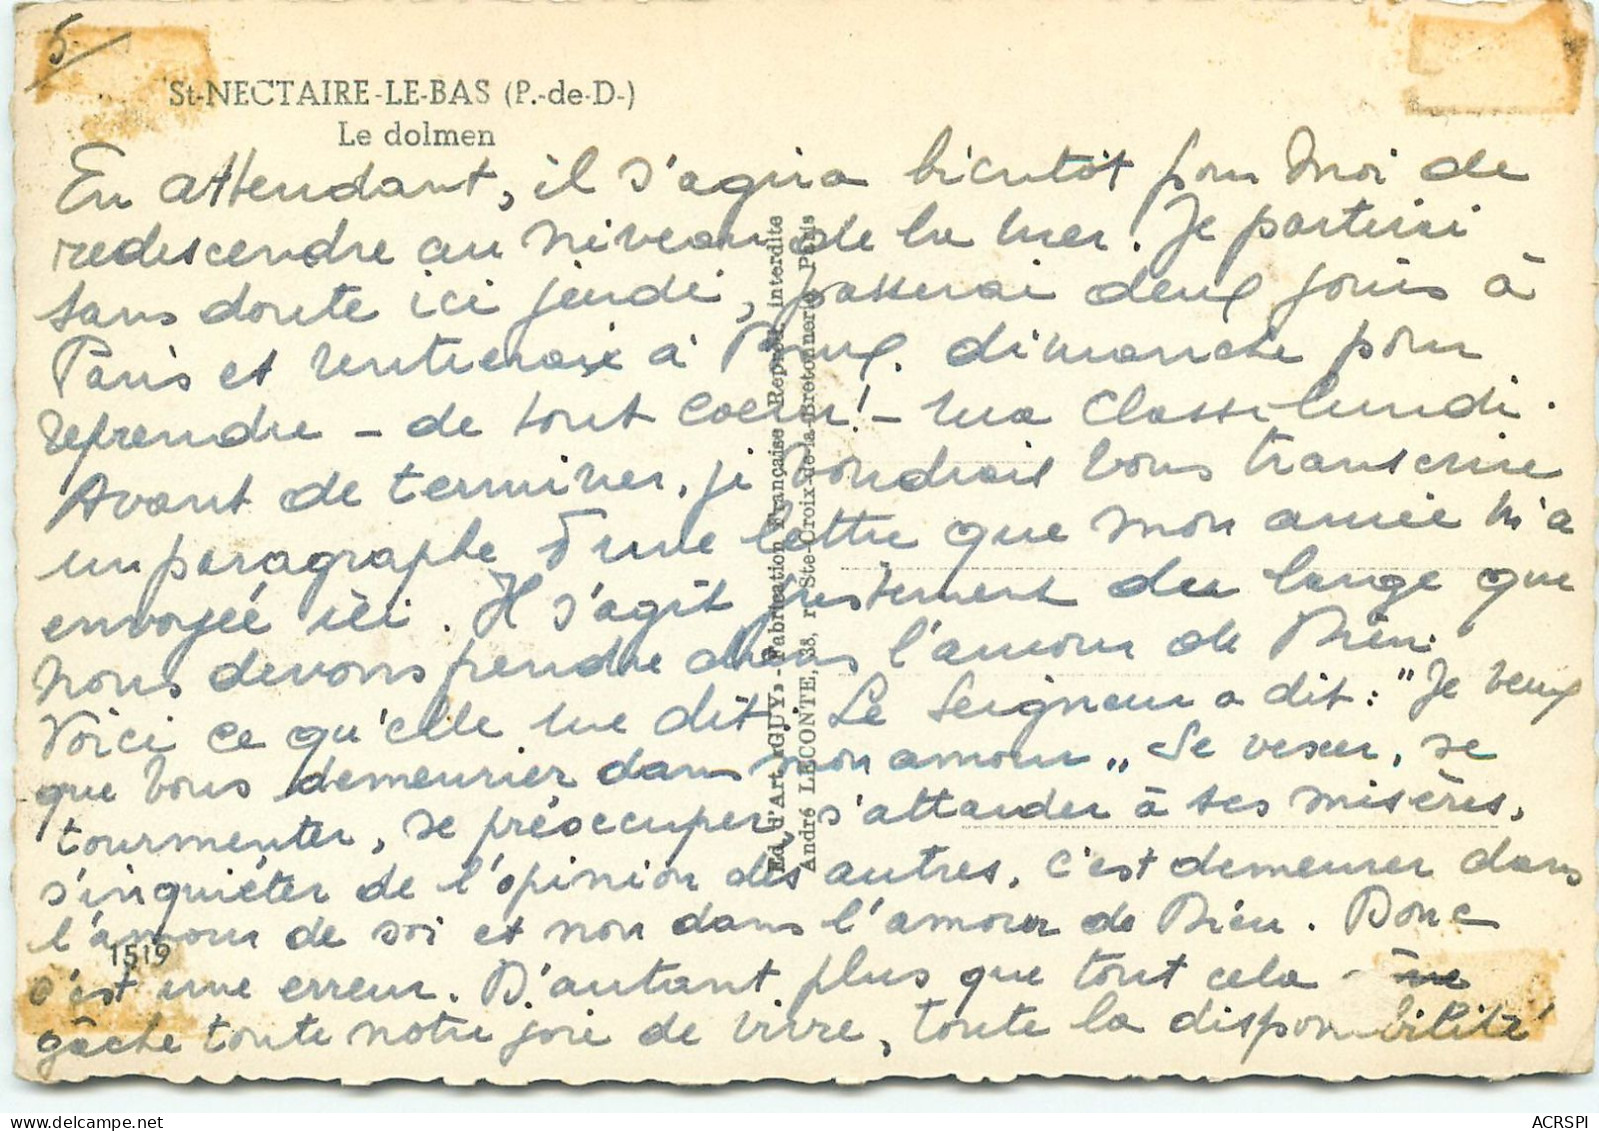 5
St-NECTAIRE-LE-BAS (P.-de-D-)
Le dolmen
En attendant, il s'agira bientôt pour moi de
redescendre au niveau de la mer. Je partirai
sans doute ici jeudi, passerai deux jours à
Paris et rentrerai à Brux. dimanche pour
reprendre - de tout coeur! - ma classe lundi.
Avant de terminer, je voudrais vous transcrire
un paragraphe d'une lettre que mon amie m'a
envoyée ici. Il s'agit justement du lange que
nous devons prendre dans l'amour de Dieu.
Voici ce qu'elle me dit: Le Seigneur a dit: "Je veux
que vous demeuriez dans mon amour„ Se vexer, se
tourmenter, se préoccuper, s'attarder à ses misères,
s'inquiéter de l'opinion des autres, c'est demeurer dans
l'amour de soi et non dans l'amour de Dieu. Donc
c'est une erreur. D'autant plus que tout cela
gâche toute notre joie de vivre, toute la disponibilité
Ed. d'Art "GUY" - Fabrication Française - Reprod. interdite
André LECONTE, 38, r. Ste-Croix-de-la-Bretonnerie, Paris
1519
ACRSPI